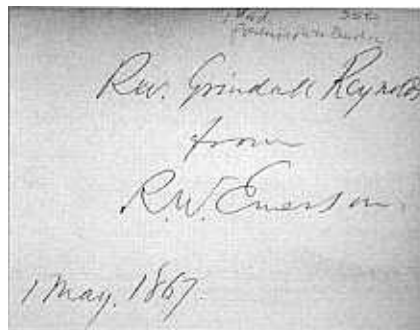 Rev. Grindall Reynolds
from
R.W. Emerson.
1 May, 1867.